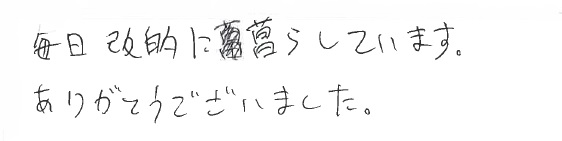 毎日改的に暮らしています。
ありがとうでざいました。